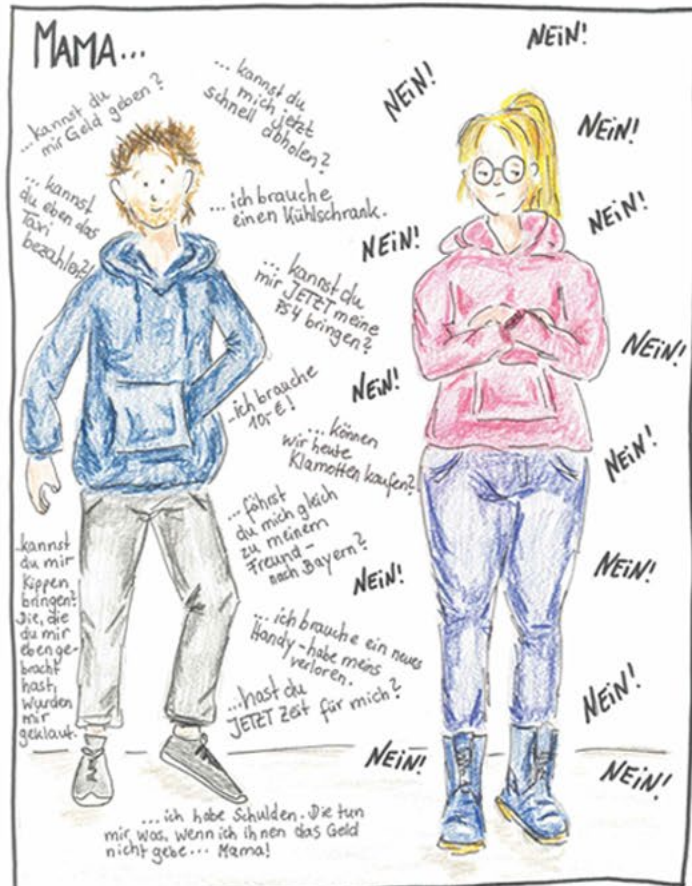 MAMA...
...kannst du
mir Geld geben?
...kannst du
mich jetzt
schnell abholen?
...kannst
du eben das
Taxi
bezahlen?!
...ich brauche
einen Kühlschrank.
...kannst du
mir JETZT meine
PS4 bringen?
...ich brauche
10,-€!
...können
wir heute
Klamotten kaufen?
...fährst
du mich gleich
zu meinem
Freund -
nach Bayern?
...kannst
du mir
Kippen
bringen?
Die, die
du mir
eben ge-
bracht
hast,
wurden
mir
geklaut.
...ich brauche ein neues
Handy - habe meins
verloren.
...hast du
JETZT Zeit für mich?
...ich habe Schulden. Die tun
mir was, wenn ich ihnen das Geld
nicht gebe... Mama!
NEiN!
NEiN!
NEiN!
NEiN!
NEiN!
NEiN!
NEiN!
NEiN!
NEiN!
NEiN!
NEiN!
NEiN!
NEiN!